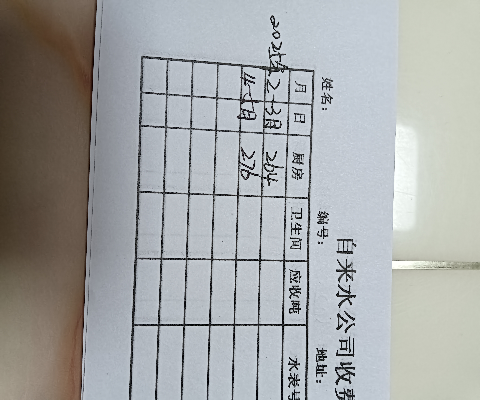 自来水公司收费
姓名: 编号: 地址:
月 日 厨房 卫生间 应收吨 水表号
2025年2-3月 264
4-5月 276